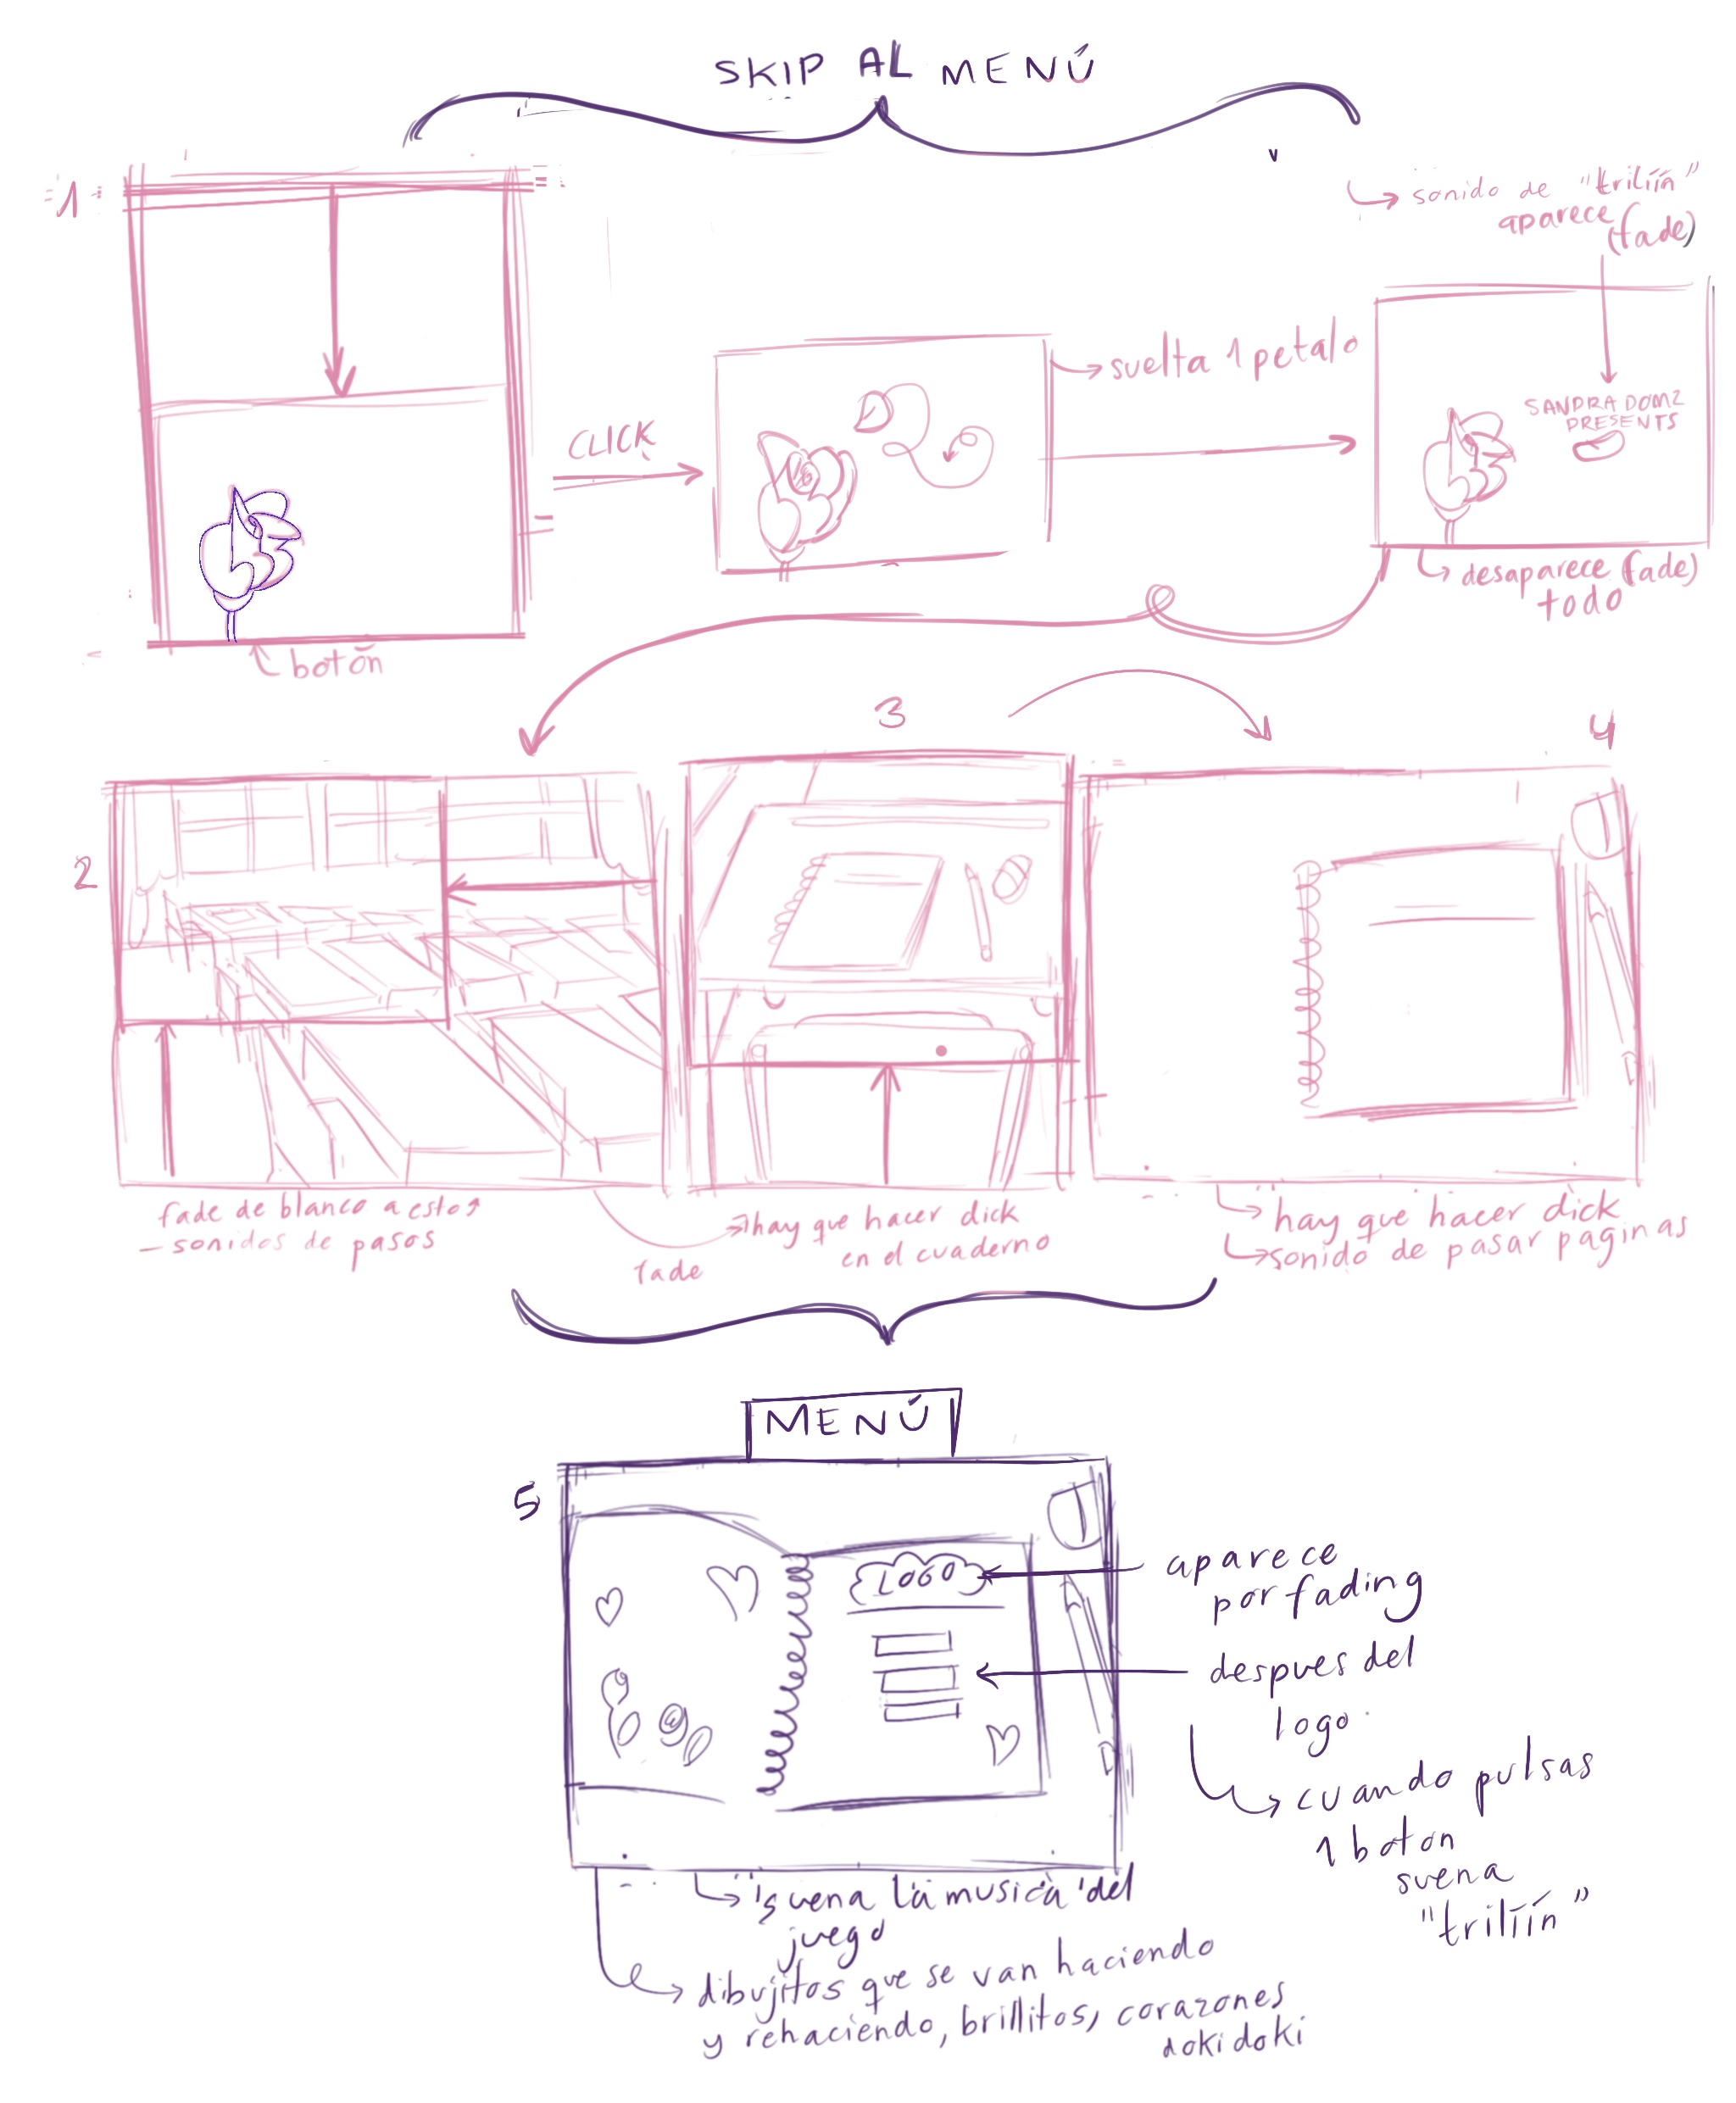 SKIP AL MENÚ
1
sonido de "triliín"
aparece
(fade)
CLICK
suelta 1 petalo
SANDRA DOMZ
PRESENTS
desaparece (fade)
todo
botón
3
4
2
fade de blanco a esto
- sonidos de pasos
fade
hay que hacer click
en el cuaderno
hay que hacer click
sonido de pasar paginas
MENÚ
5
LOGO
aparece
por fading
despues del
logo
cuando pulsas
1 boton
suena
"triliín"
suena la musica del
juego
dibujitos que se van haciendo
y rehaciendo, brillitos, corazones
doki doki